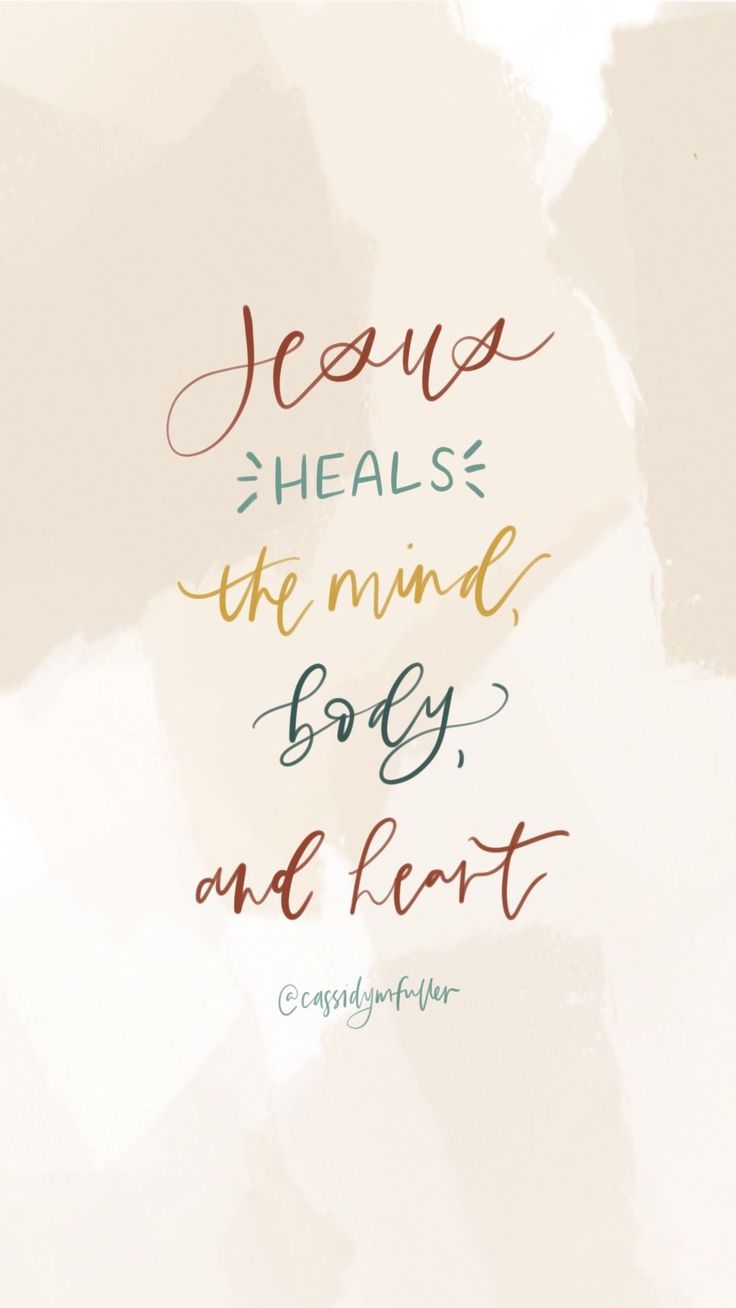 Jesus
HEALS
the mind,
body,
and heart
@cassidymfuller